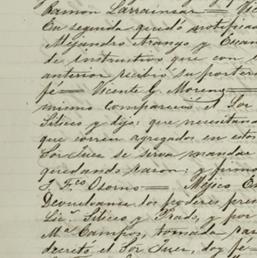 Ramon Larrainsar
En seguida quedó notificado
Alejandro Arango y Escan
de instructivo que con el
anterior recibio su portero
fe — Vicente G. Moreno —
mismo compareció el Sor
Siliceo y dijo: que necesitando
que corren agregados en estos
Sor Juez se sirva mandar
quedando razon; y firmó
J. Fco. Osorno — Méjico En
Devuelvanse los poderes pres
Lic. Siliceo y Prado, y por
Ma. Campos, tomada raz
decretó el Sor Juez, doy fe